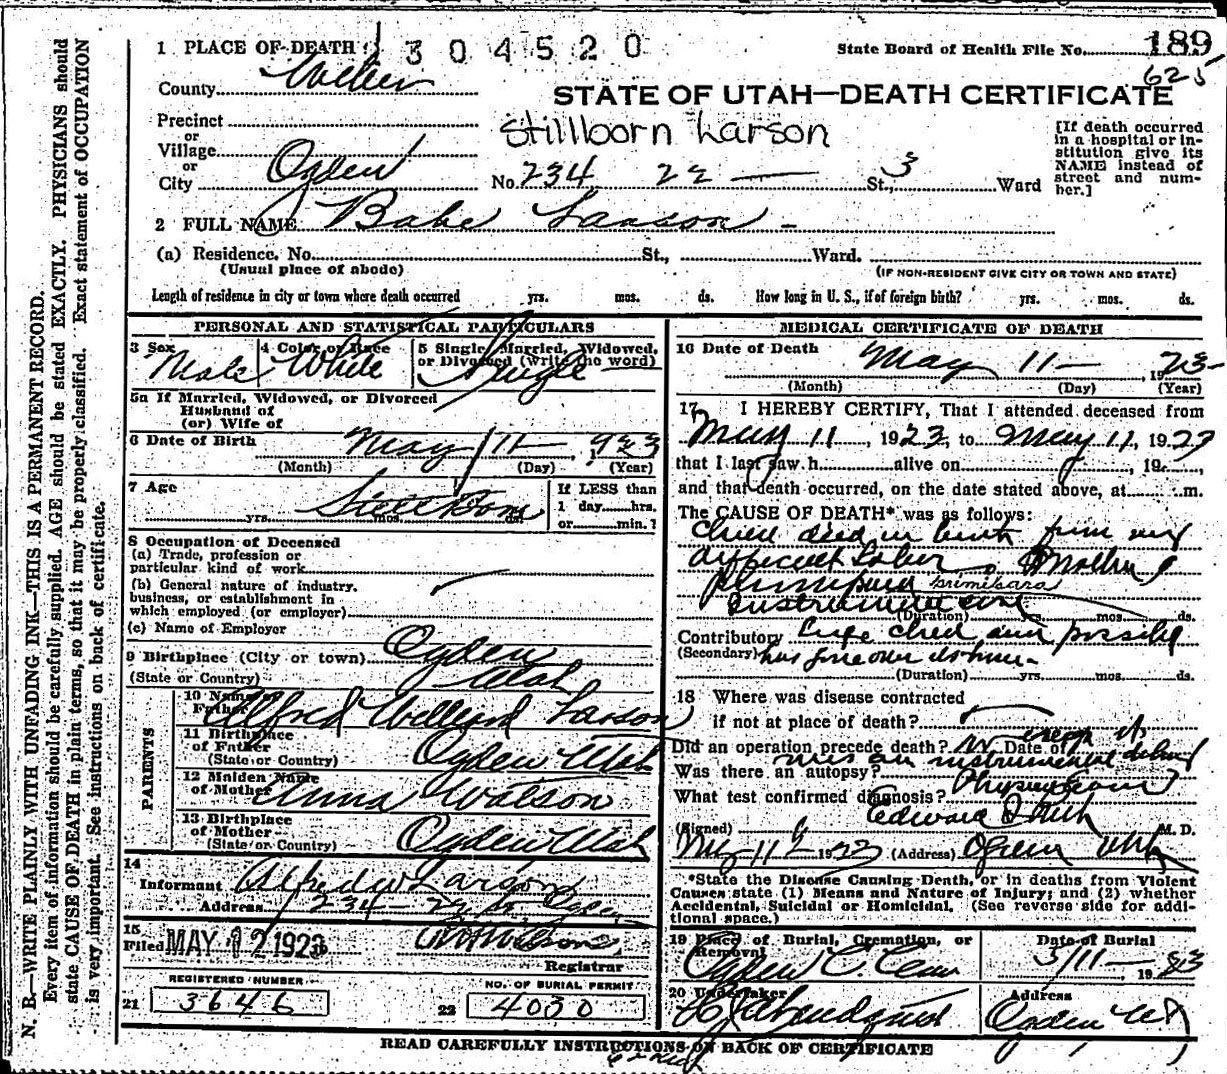 1 PLACE OF DEATH 1 3 0 4 5 2 0
State Board of Health File No. 189
625
County Weber
STATE OF UTAH—DEATH CERTIFICATE
Precinct
or
Village
or
City Ogden
Stillborn Larson
No. 234 22 — St., 3 Ward
[If death occurred
in a hospital or in-
stitution give its
NAME instead of
street and num-
ber.]
2 FULL NAME Babe Larson -
(a) Residence. No. St., Ward.
(Usual place of abode)
(IF NON-RESIDENT GIVE CITY OR TOWN AND STATE)
Length of residence in city or town where death occurred yrs. mos. ds. How long in U. S., if of foreign birth? yrs. mos. ds.
PERSONAL AND STATISTICAL PARTICULARS
3 Sex 4 Color or Race 5 Single, Married, Widowed,
or Divorced (write the word)
Male White Single
5a If Married, Widowed, or Divorced
Husband of
(or) Wife of
6 Date of Birth May 11 - 1923
(Month) (Day) (Year)
7 Age Still Born
yrs. mos. ds.
If LESS than
1 day hrs.
or min.?
8 Occupation of Deceased
(a) Trade, profession or
particular kind of work
(b) General nature of industry,
business, or establishment in
which employed (or employer)
(c) Name of Employer
9 Birthplace (City or town) Ogden
(State or Country) Utah
PARENTS
10 Name of
Father Alfred Willard Larson
11 Birthplace
of Father
(State or Country) Ogden Utah
12 Maiden Name
of Mother Anna Watson
13 Birthplace
of Mother
(State or Country) Ogden Utah
14
Informant Alfred W Larson
Address 234 - 22 St. Ogden
15
Filed MAY 12 1923
Registrar
REGISTERED NUMBER
21 3646
NO. OF BURIAL PERMIT
22 4030
MEDICAL CERTIFICATE OF DEATH
16 Date of Death May 11 - , 1923-
(Month) (Day) (Year)
17 I HEREBY CERTIFY, That I attended deceased from
May 11, 1923, to May 11, 1923
that I last saw h alive on , 19 ,
and that death occurred, on the date stated above, at m.
The CAUSE OF DEATH* was as follows:
Child died in birth from very
difficult Labor - Mother
primipara primipara
Instrumental
(Duration) yrs. mos. ds.
Contributory Large child and possibly
(Secondary) has gone over its time -
(Duration) yrs. mos. ds.
18 Where was disease contracted
if not at place of death?
Did an operation precede death? No Date of except it
was an instrumental delivery
Was there an autopsy?
What test confirmed diagnosis?
(Signed) Edward M. D.
May 11 1923 (Address) Ogden Utah
*State the Disease Causing Death, or in deaths from Violent
Causes state (1) Means and Nature of Injury; and (2) whether
Accidental, Suicidal or Homicidal. (See reverse side for addi-
tional space.)
19 Place of Burial, Cremation, or
Removal Ogden C. Cem
Date of Burial
5/11 - , 1923
20 Undertaker
Address
Ogden Ut
READ CAREFULLY INSTRUCTIONS ON BACK OF CERTIFICATE
N. B.—WRITE PLAINLY WITH UNFADING INK—THIS IS A PERMANENT RECORD.
Every item of information should be carefully supplied. AGE should be stated EXACTLY. PHYSICIANS should
state CAUSE OF DEATH in plain terms, so that it may be properly classified. Exact statement of OCCUPATION
is very important. See instructions on back of certificate.